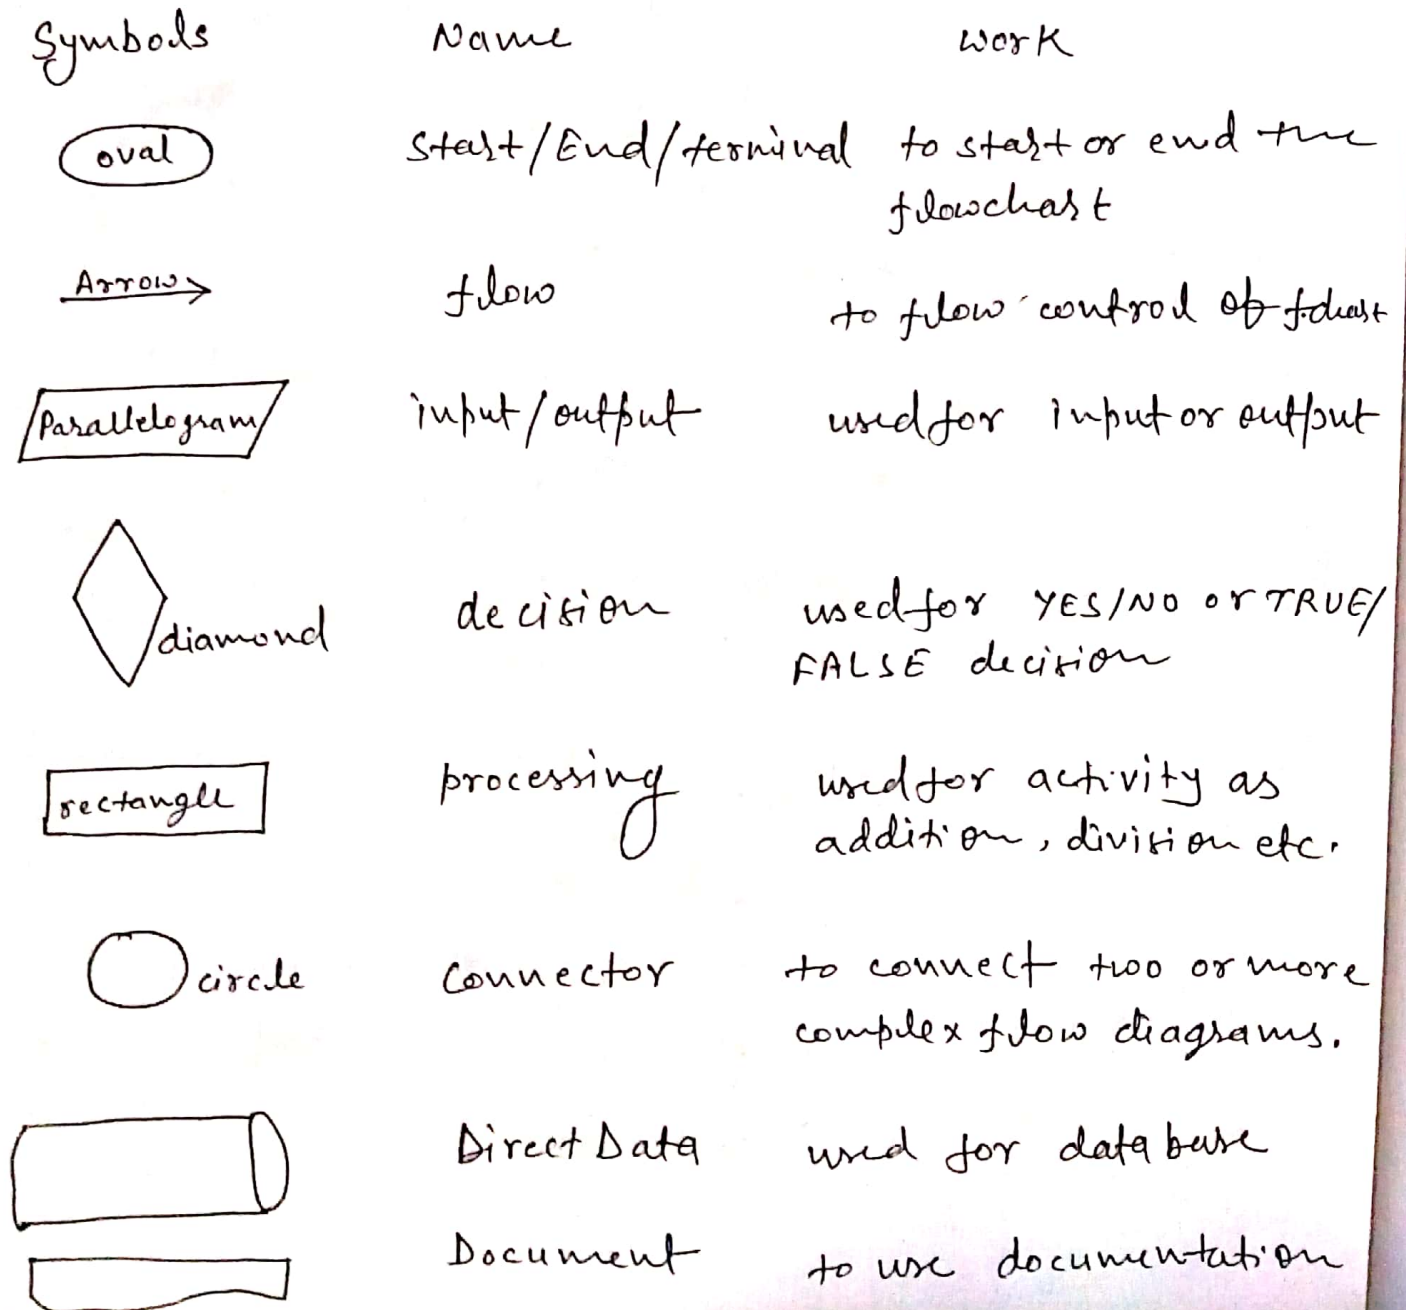 Symbols Name work
oval Start/End/terminal to start or end the
flowchart
Arrow flow to flow control of f.chart
Parallelogram input/output used for input or output
diamond decision used for YES/NO or TRUE/
FALSE decision
rectangle processing used for activity as
addition, division etc.
circle Connector to connect two or more
complex flow diagrams.
Direct Data used for data base
Document to use documentation